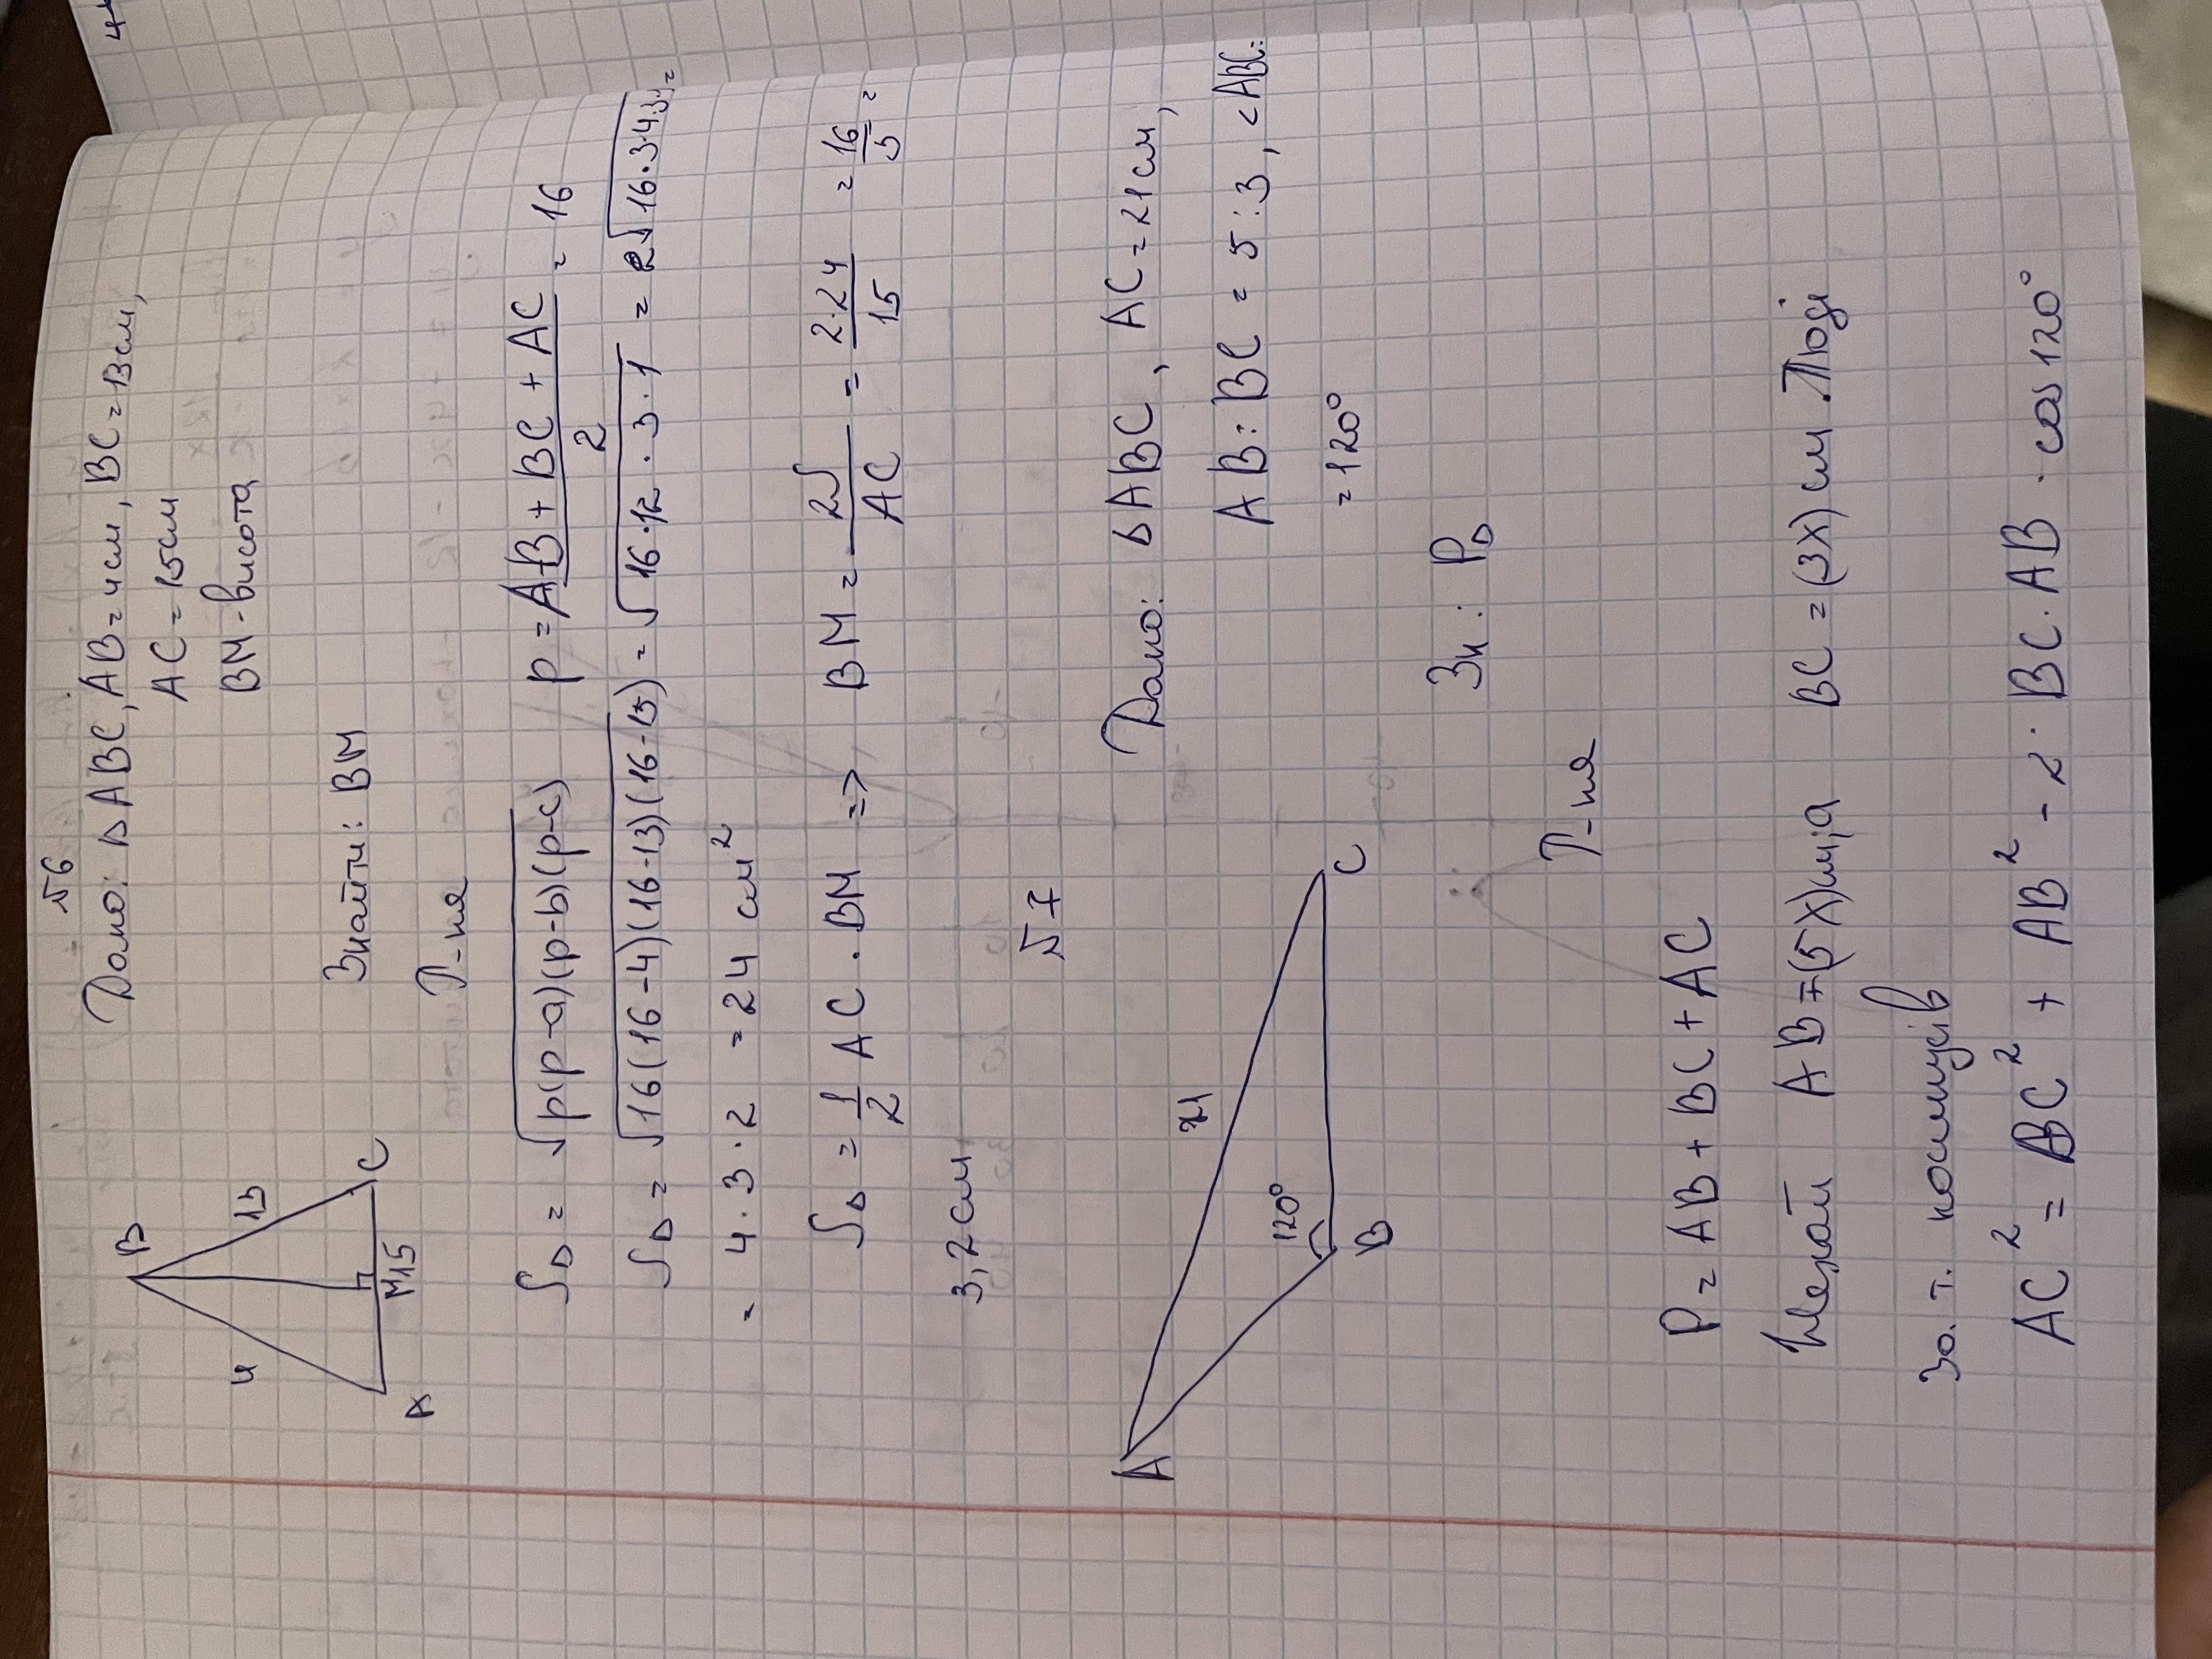 №6
Дано: △ABC, AB=4см, BC=13см,
AC=15см
BM-висота
B
4
13
A
M
15
C
Знайти: BM
Р-ня
S△ = √p(p-a)(p-b)(p-c) p = AB+BC+AC/2 = 16
S△ = √16(16-4)(16-13)(16-15) = √16·12·3·1 = √16·3·4·3 =
= 4·3·2 = 24 см²
S△ = 1/2 AC·BM => BM = 2S/AC = 2·24/15 = 16/5 =
3,2см
№7
A
21
120°
B
C
Дано: △ABC, AC=21см,
AB:BC = 5:3, <ABC=
=120°
Зн: P△
Р-ня
P = AB + BC + AC
Нехай AB=(5x)см, а BC=(3x)см. Тоді
за т. косинусів
AC² = BC² + AB² - 2·BC·AB·cos120°